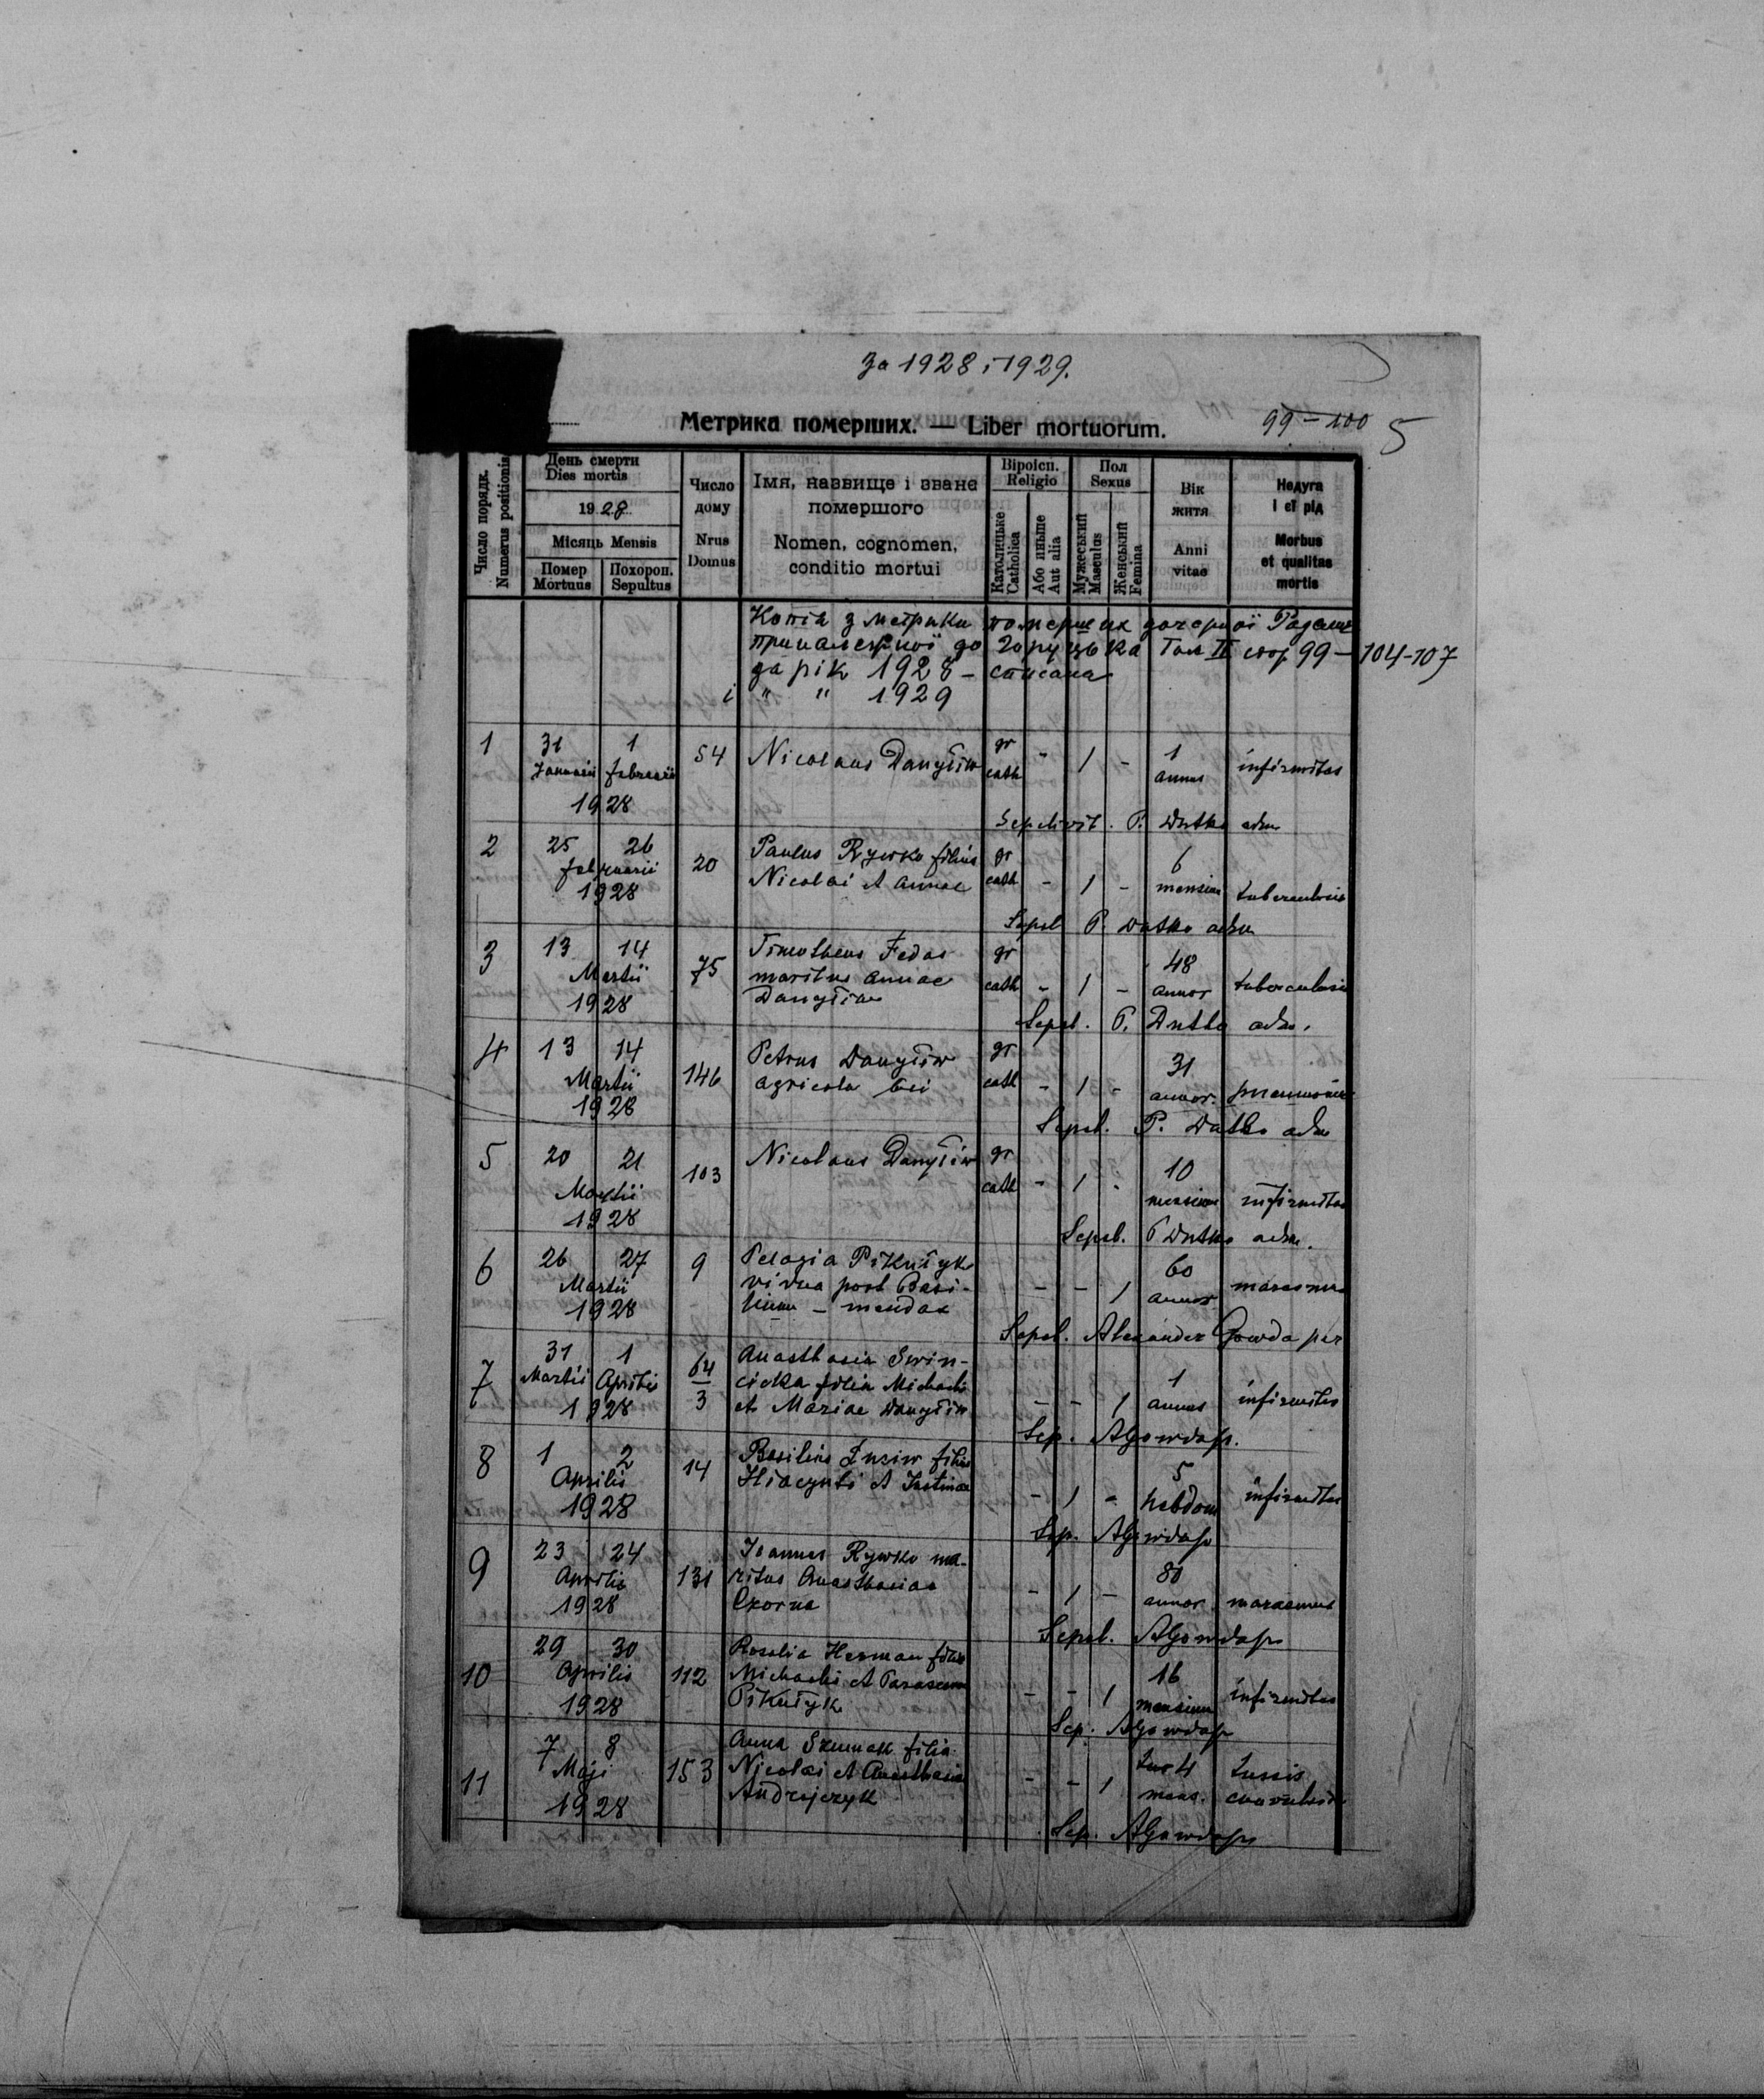 За 1928 і 1929.
Метрика померших. — Liber mortuorum.
99-100 5
Число порядк. Numerus positionis
День смерти Dies mortis
1928
Місяць Mensis
Помер Mortuus
Похорон. Sepultus
Число дому Nrus Domus
Імя, назвище і званє помершого
Nomen, cognomen, conditio mortui
Віроісп. Religio
Католицьке Catholica
Або иньше Aut alia
Пол Sexus
Мужеський Masculus
Женський Femina
Вік житя Anni vitae
Недуга і єї рід Morbus et qualitas mortis
Копія з метрики померших дочерної
приналежної до Том II стор 99 — 104-107
за рік 1928 - списана
і " " 1929
1 31 Januarii 1 februarii 1928 54 Nicolaus Danyliw gr cath - 1 - 1 annus infirmitas
Sepelivit. P. Dutko adm
2 25 26 februarii 1928 20 Paulus Rywko filius Nicolai et Annae gr cath - 1 - 6 mensium tuberculosis
Sepel P. Dutko adm
3 13 14 Martii 1928 75 Timotheus Fedas maritus Annae Danyliw gr cath - 1 - 48 annor tuberculosis
Sepel. P. Dutko adm.
4 13 14 Martii 1928 146 Petrus Danyliw agricola gr cath - 1 - 31 annor. pneumonia
Sepel. P. Dutko adm
5 20 21 Martii 1928 103 Nicolaus Danyliw gr cath - 1 - 10 mensium infirmitas
Sepel. P Dutko adm.
6 26 27 Martii 1928 9 Pelagia Pikulyk vidua post Basilium - mendax - - 1 60 annor marasmus
Sepel. Alexander Gowda par
7 31 Martii 1 Aprilis 1928 64/3 Anasthasia Swincicka filia Michaelis et Mariae Danyliw - - 1 1 annus infirmitas
Sep. AGowda p.
8 1 2 Aprilis 1928 14 Basilius filius Hiacynti et Justinae - 1 - 5 hebdom infirmitas
Sep. AGowda p
9 23 24 Aprilis 1928 131 Ioannes Rywko maritus Anasthasiae - 1 - 80 annor. marasmus
Sepel. AGowda p
10 29 30 Aprilis 1928 112 Rosalia Herman filia Michaelis et Parascevae Pikulyk - - 1 16 mensium infirmitas
Sep. AGowda p
11 7 8 Maji 1928 153 Anna Szumak filia Nicolai et Anasthasia Andrejczyk - - 1 4 mens. tussis convulsiva
Sep. AGowda p